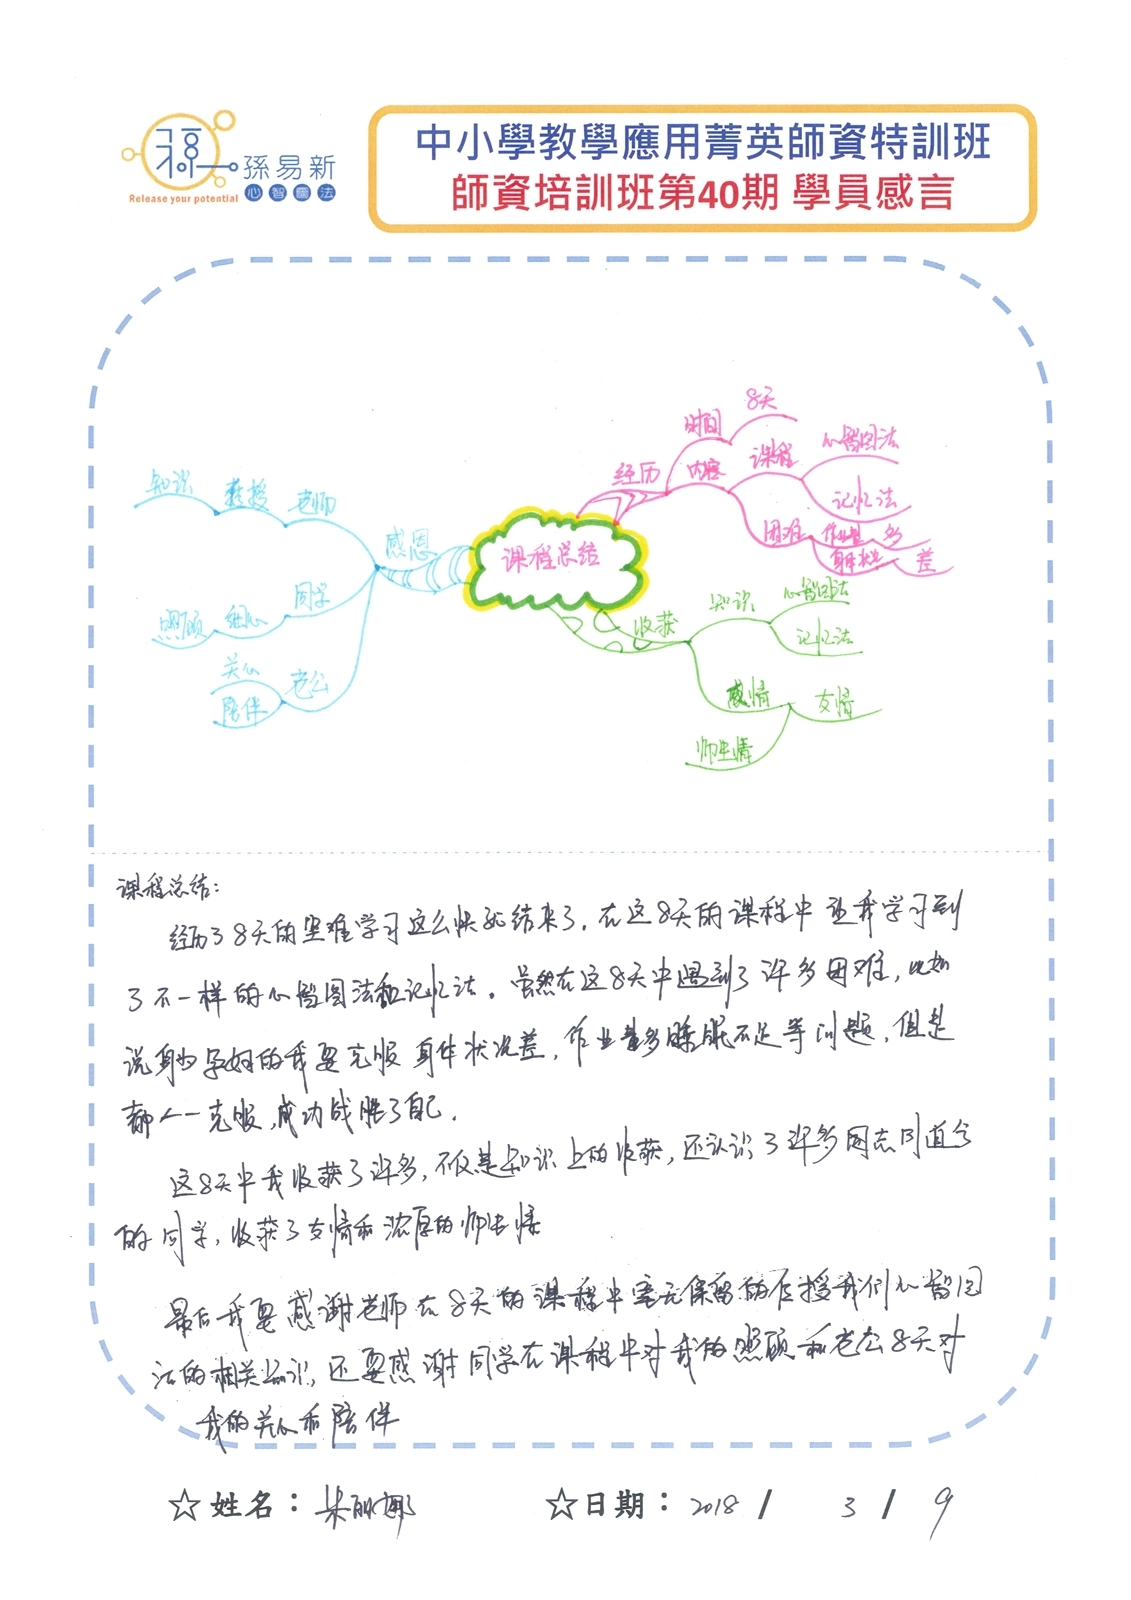 孫易新
心智圖法
Release your potential
中小學教學應用菁英師資特訓班
師資培訓班第40期 學員感言
课程总结
经历
时间
8天
内容
课程
心智图法
记忆法
困难
作业量
多
身体状况
差
收获
知识
心智图法
记忆法
感情
友情
师生情
感恩
老师
教授
知识
同学
细心
照顾
老公
关心
陪伴
课程总结：
经历了8天的坚难学习这么快就结束了，在这8天的课程中让我学习到
了不一样的心智图法和记忆法。虽然在这8天中遇到了许多困难，比如
说身为孕妇的我要克服身体状况差，作业量多睡眠不足等问题，但是
都一一克服，成功战胜了自己．
这8天中我收获了许多，不仅是知识上的收获，还认识了许多同志同道合
的同学，收获了友情和浓厚的师生情
最后我要感谢老师在8天的课程中毫无保留的传授我们心智图
法的相关知识，还要感谢同学在课程中对我的照顾和老公8天对
我的关心和陪伴
☆姓名： 朱丽娜 ☆日期： 2018 / 3 / 9